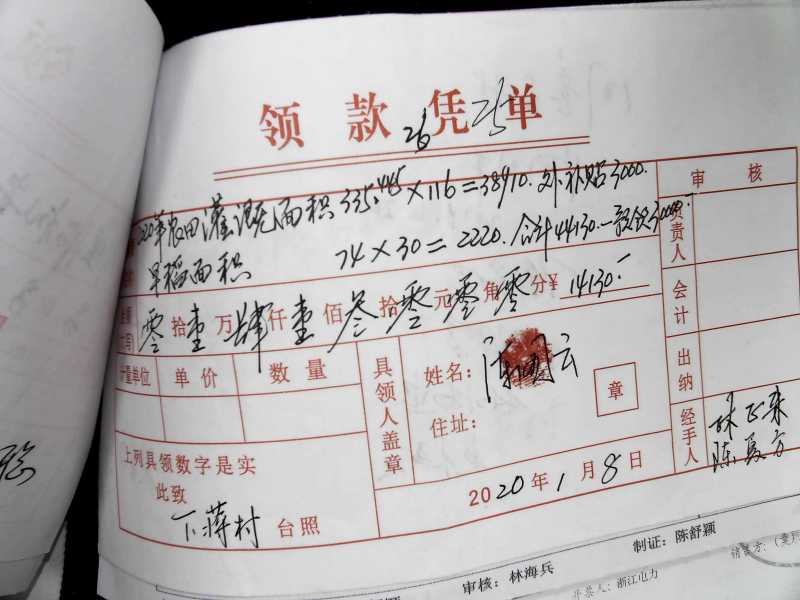 领款凭单
26 25
2020年农田灌溉面积335.445×116=38910.外补贴3000.
早稻面积 74×30=2220.合计44130.一
审核
负责人
会计
出纳
经手人
零拾壹万肆仟壹佰叁拾零元零角零分¥14130.-
计量单位 单价 数量
具领人盖章
姓名:
云
住址:
章
上列具领数字是实
此致
下蒋村 台照
2020年1月8日
林正来
陈夏方
审核:林海兵
制证:陈舒颖
开票人:浙江电力
销售方: